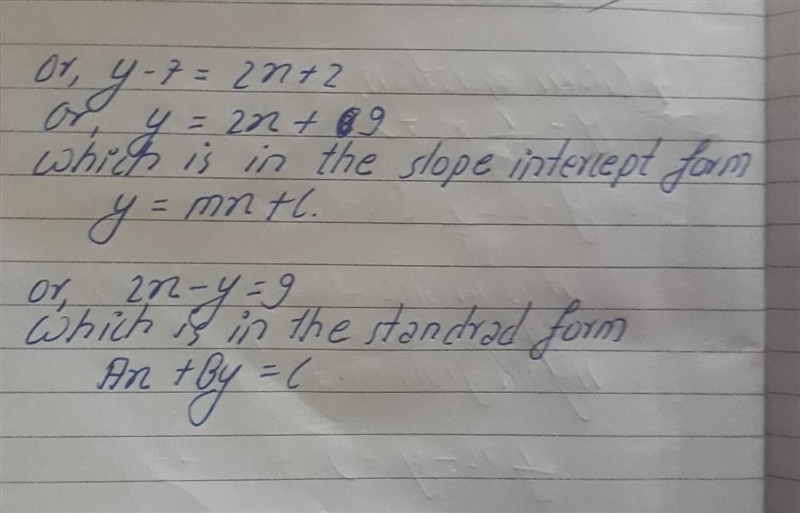 or, y - 7 = 2x + 2
or, y = 2x + 9
which is in the slope intercept form
y = mx + c.
or, 2x - y = 9
which is in the standrad form
Ax + By = C